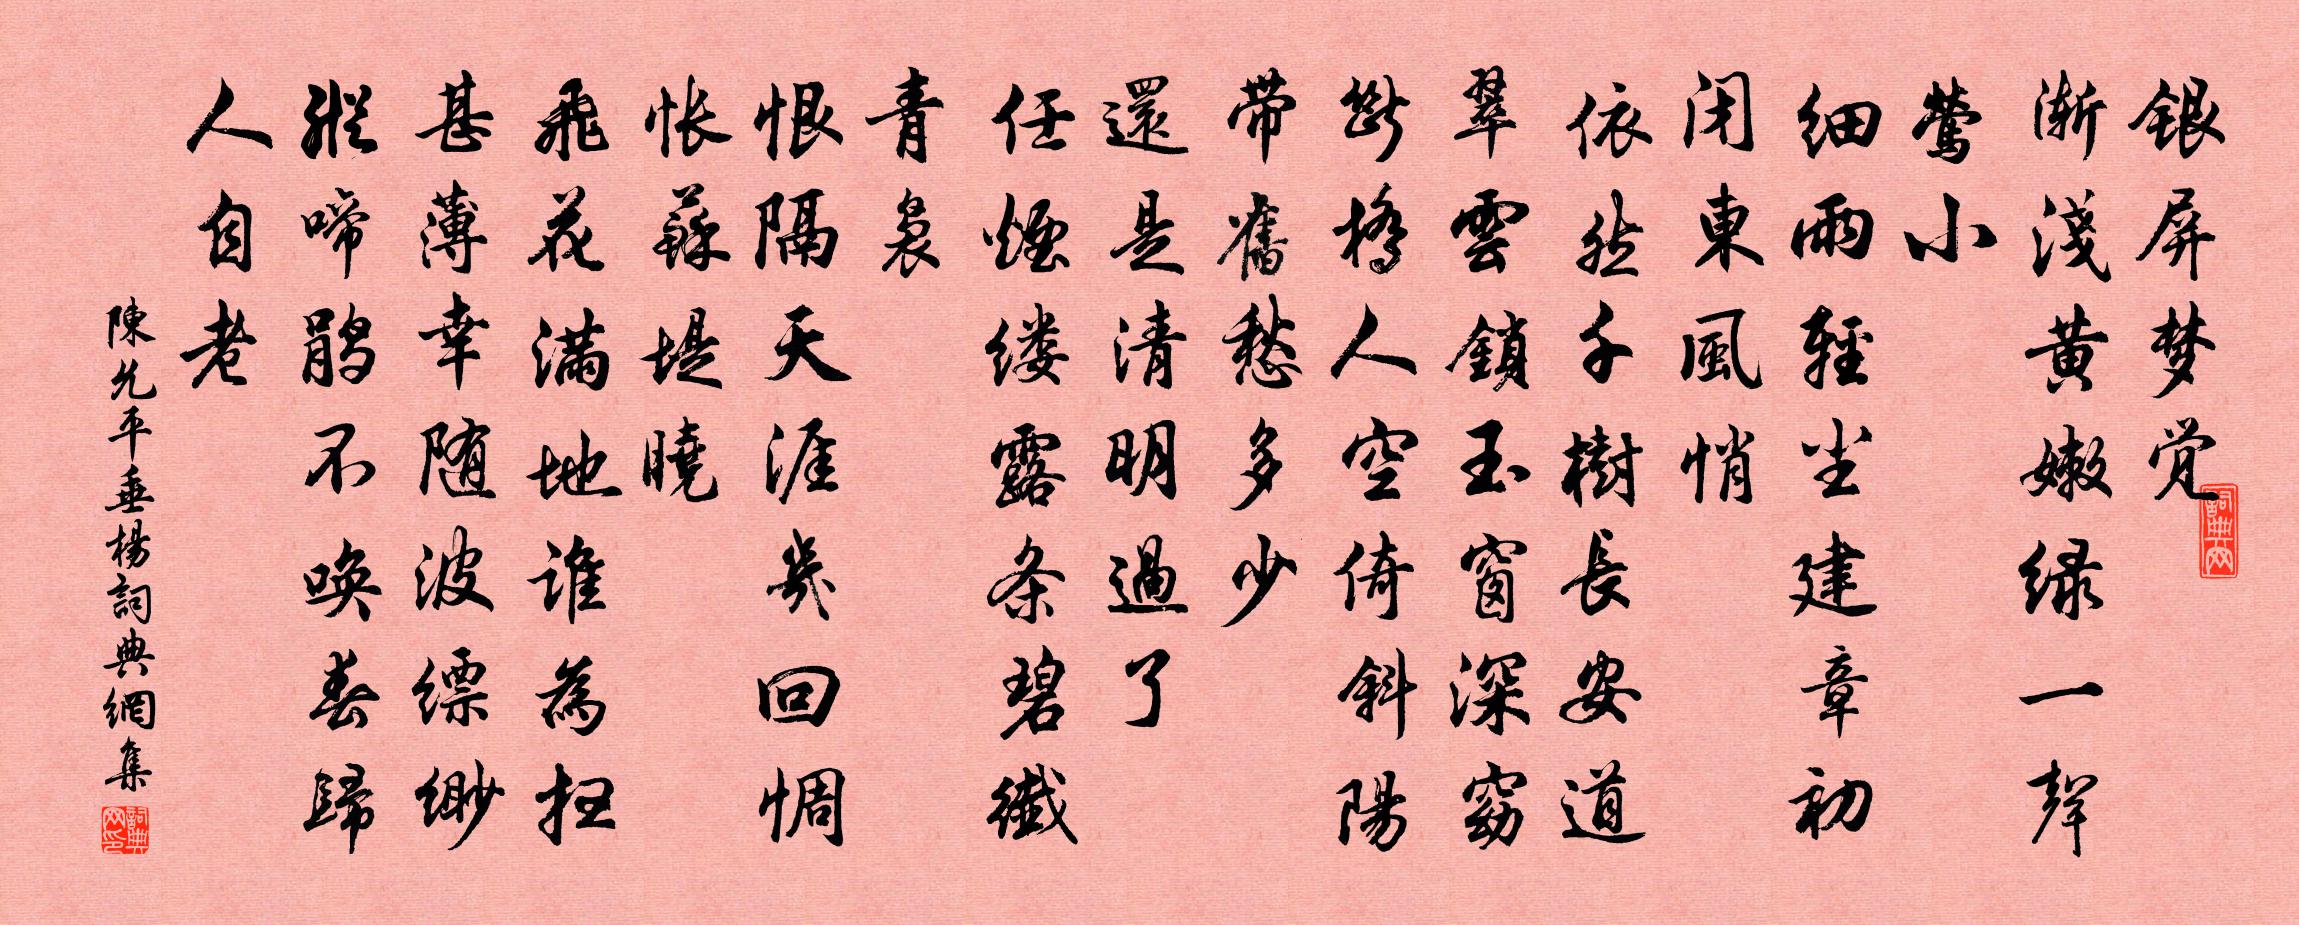 銀屏梦觉
渐淺黄嫩绿一聲
鶯小
细雨輕尘建章初
闭東風悄
依然千樹長安道
翠雲鎖玉窗深窈
斷橋人空倚斜陽
带舊愁多少
還是清明過了
任煙缕露条碧纖
青裊
恨隔天涯幾回惆
怅蘇堤曉
飛花满地谁為扫
甚薄幸随波缥缈
縱啼鹃不唤春歸
人自老
陳允平垂楊詞典網集
詞典网
詞典网印